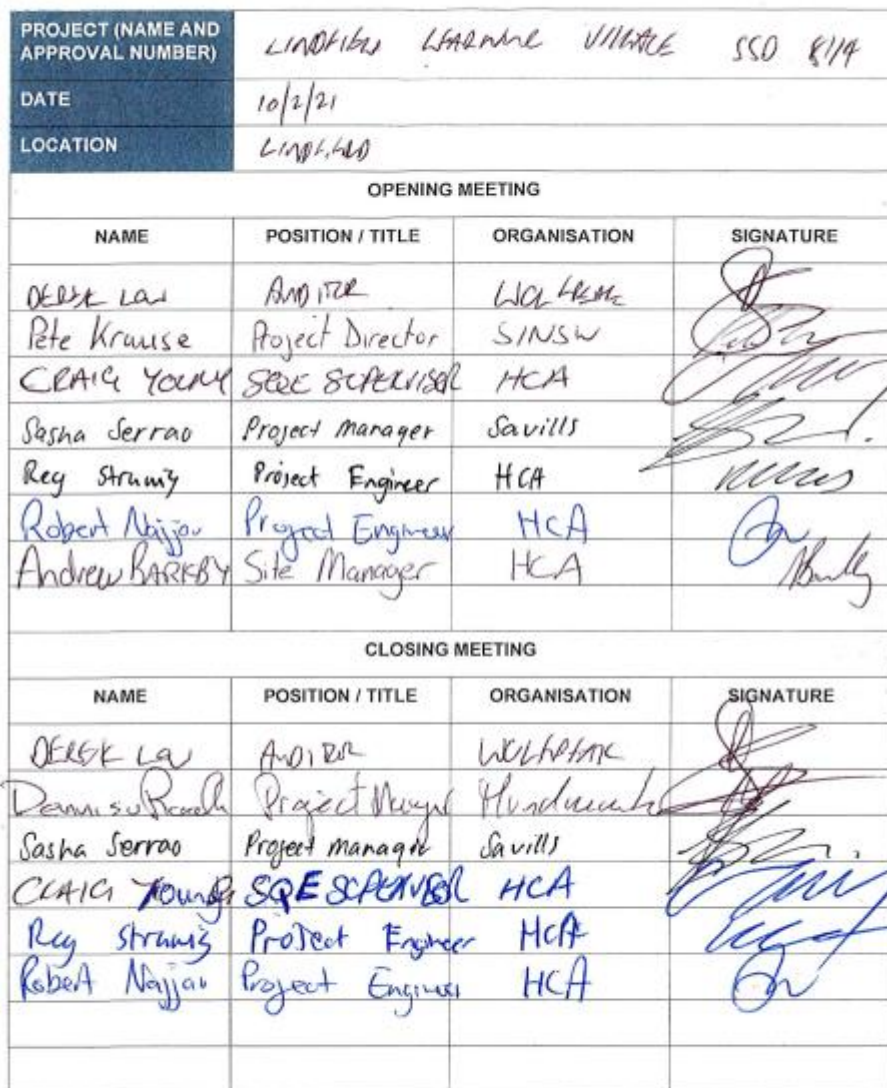 PROJECT (NAME AND APPROVAL NUMBER) LINDFIELD LEARNING VILLAGE SSD 8114
DATE 10/2/21
LOCATION LINDFIELD
OPENING MEETING
NAME POSITION / TITLE ORGANISATION SIGNATURE
DEREK LOW AUDITOR WOLFPEAK
Pete Krause Project Director SINSW
CRAIG YOUNG SQE SUPERVISOR HCA
Sasha Serrao Project manager Savills
Reg Project Engineer HCA
Robert Najjar Project Engineer HCA
Andrew BARKBY Site Manager HCA
CLOSING MEETING
NAME POSITION / TITLE ORGANISATION SIGNATURE
DEREK LOW AUDITOR WOLFPEAK
Project
Sasha Serrao Project manager Savills
CRAIG Young SQE SUPERVISOR HCA
Reg Project Engineer HCA
Robert Najjar Project Engineer HCA